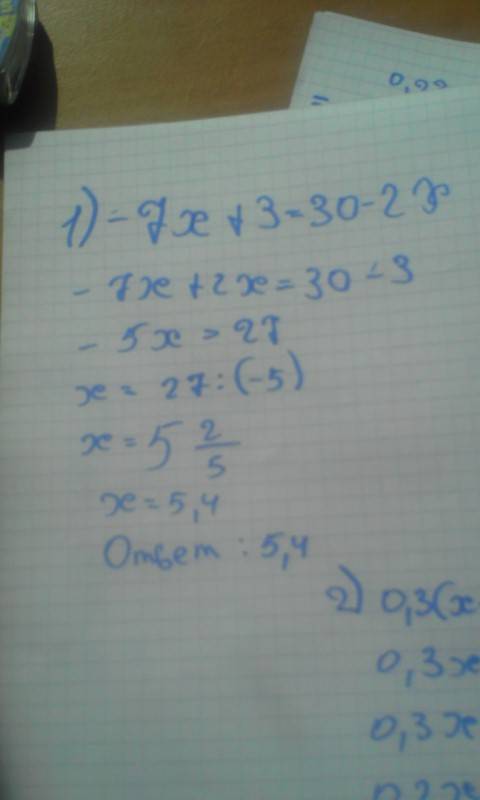 = 0,99
1) -7x + 3 = 30 - 2x
- 7x + 2x = 30 - 3
- 5x = 27
x = 27 : (-5)
x = 5 2/5
x = 5,4
Ответ : 5,4
2) 0,3(x
0,3x
0,3x